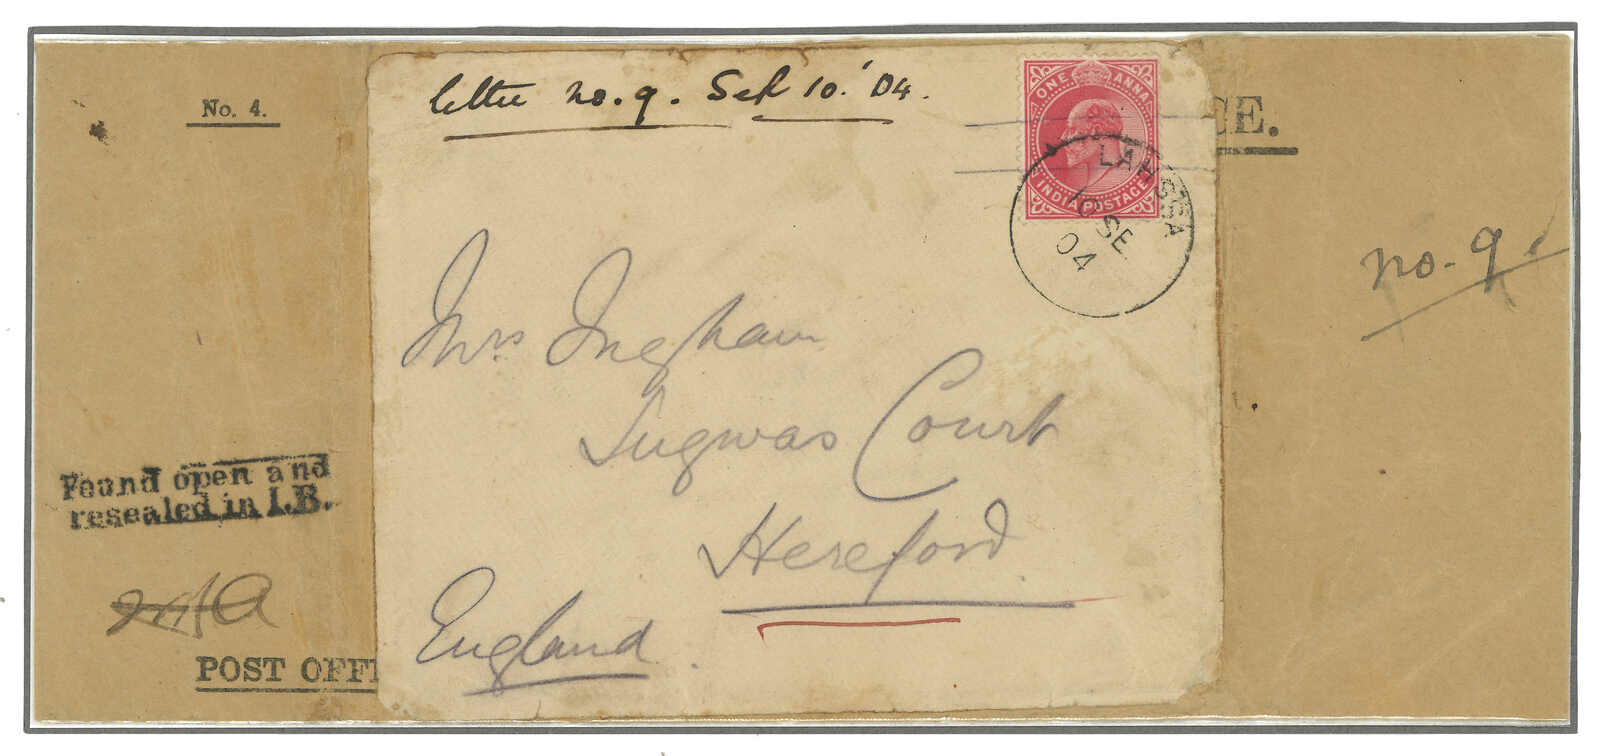 No. 4.
letter no. 9. Sep 10. '04.
ONE ANNA
INDIA POSTAGE
LAHSSA
10 SE
04
CE.
no. 9
Mrs Ingham
Sugwas Court
Hereford
England.
Found open and
resealed in I.B.
POST OFFI